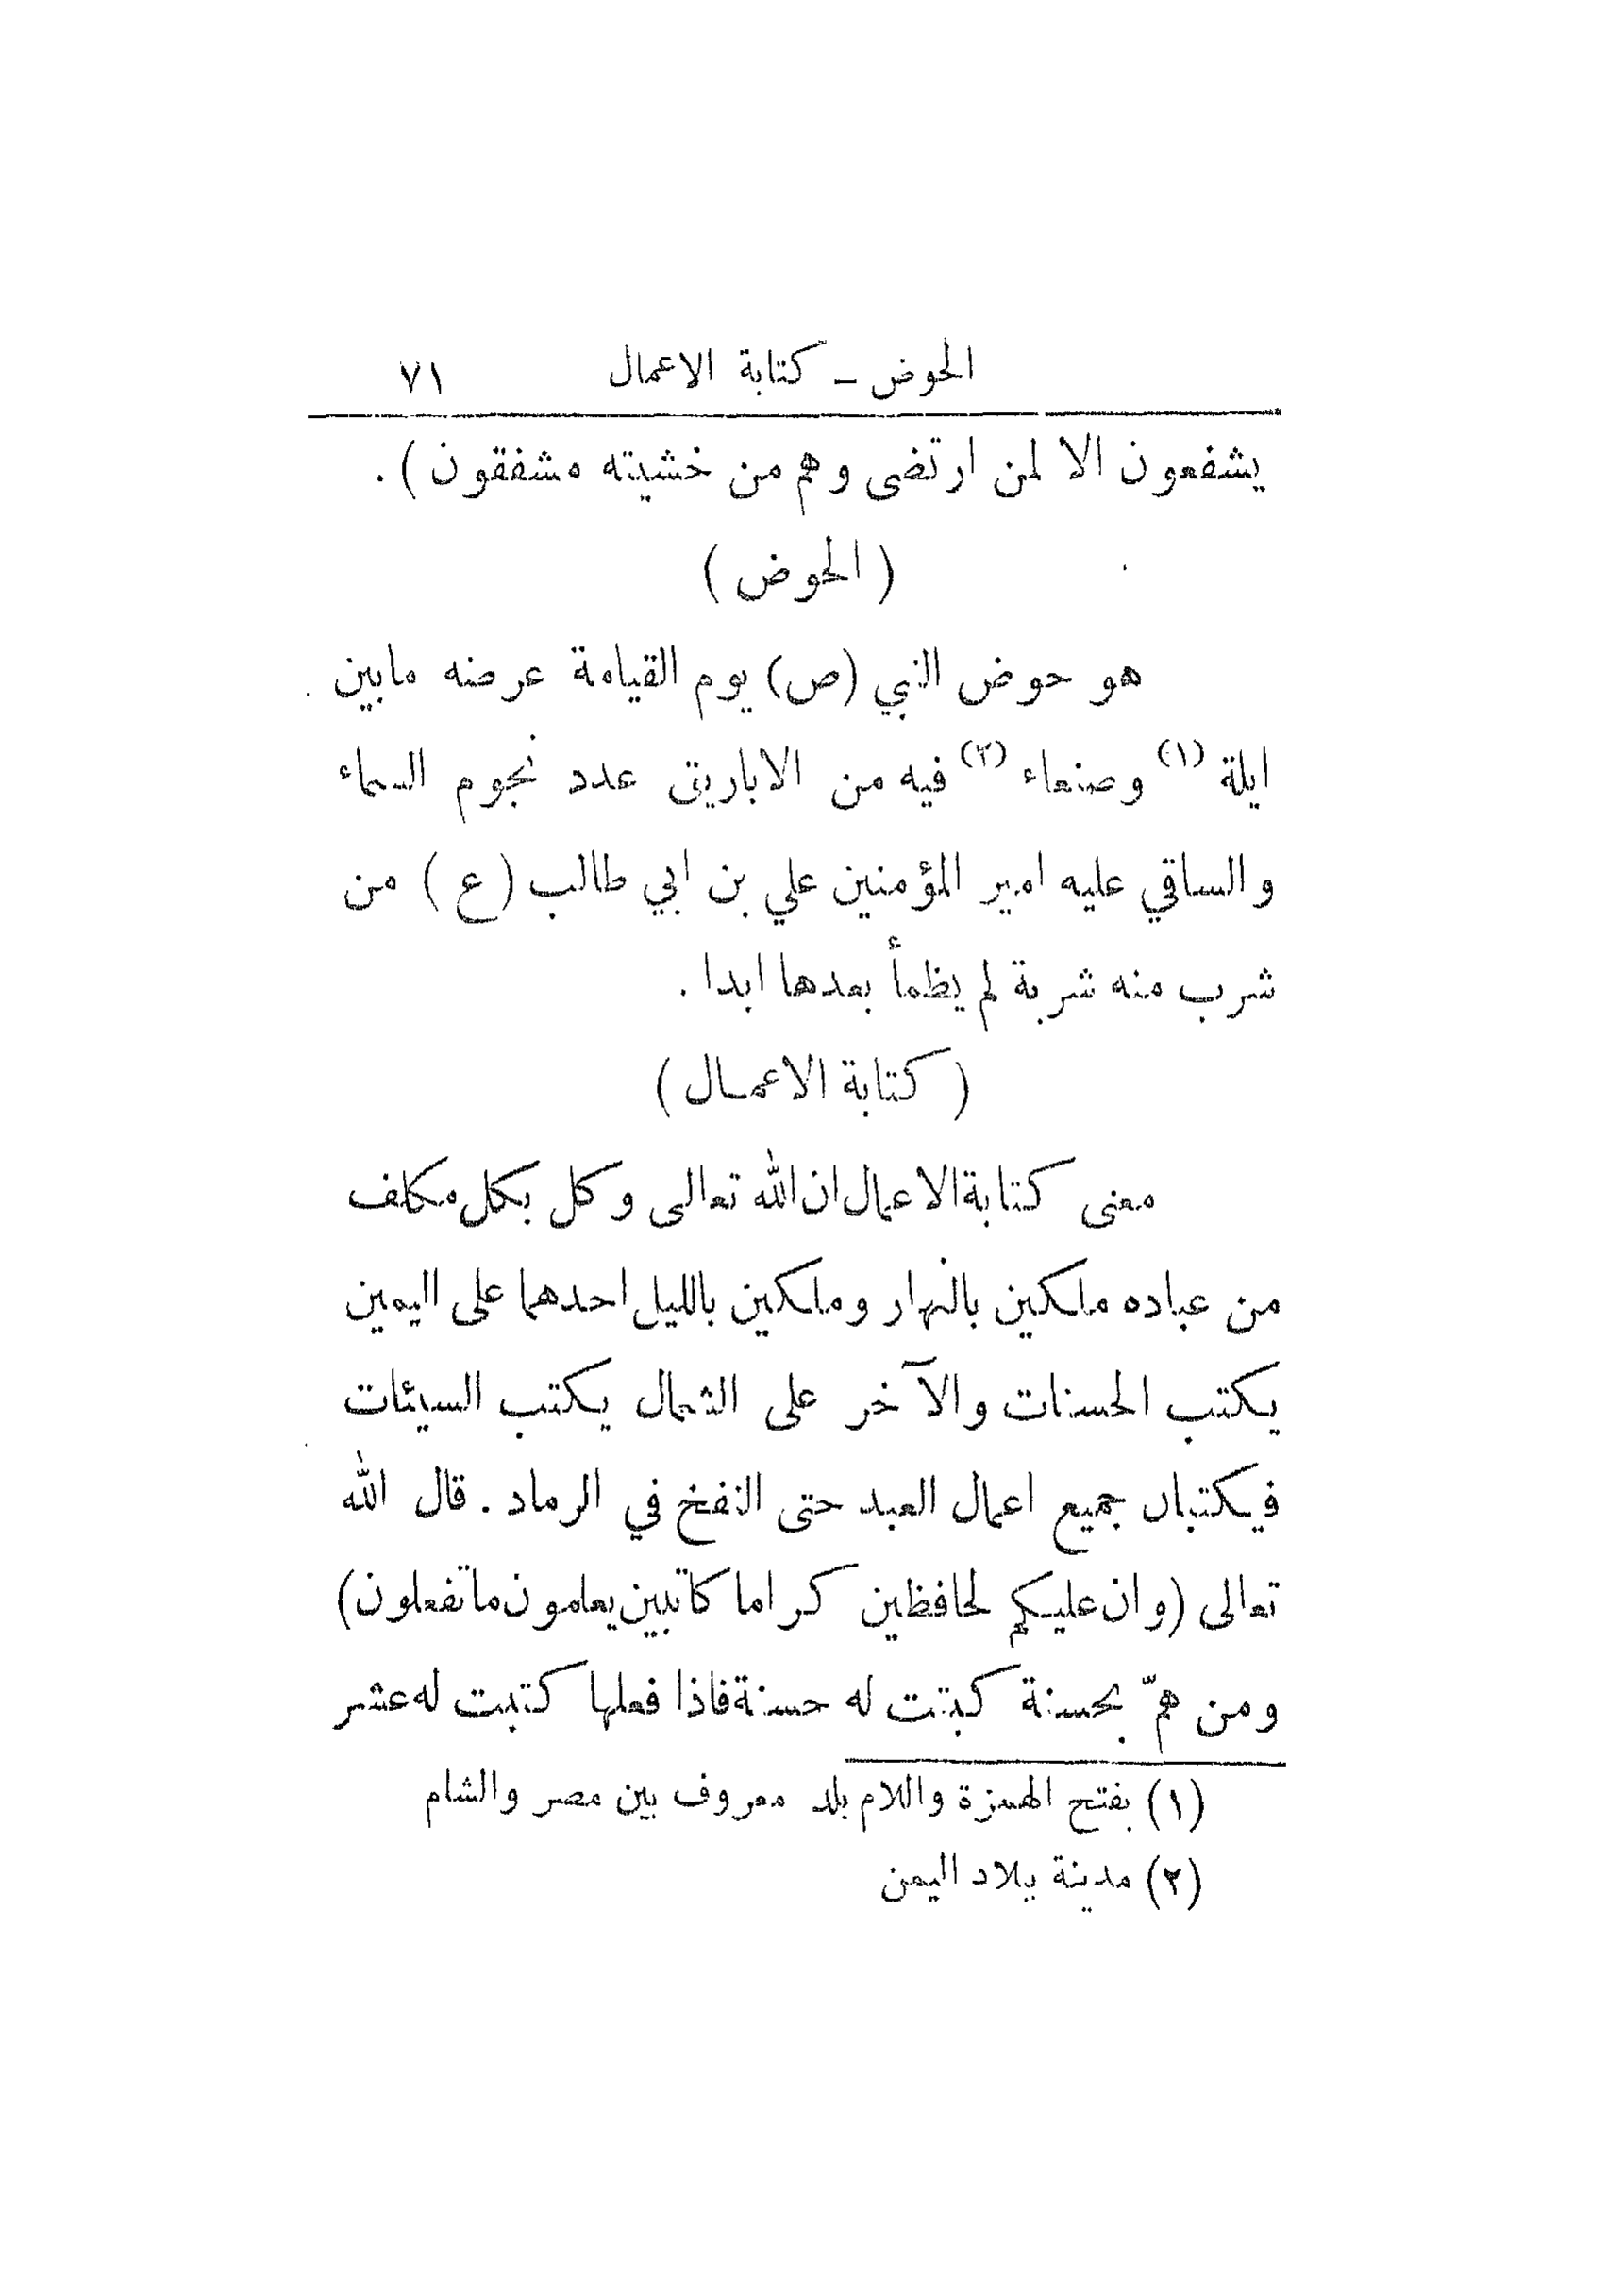 الحوض ــ كتابة الاعمال ٧١
يشفعون الا لمن ارتضى وهم من خشيته مشفقون ) .
( الحوض )
هو حوض النبي (ص) يوم القيامة عرضه مابين
ايلة (١) وصنعاء (٢) فيه من الاباريق عدد نجوم السماء
والساقي عليه امير المؤمنين علي بن ابي طالب ( ع ) من
شرب منه شربة لم يظمأ بعدها ابدا .
( كتابة الاعمال )
معنى كتابة الاعمال ان الله تعالى وكل بكل مكلف
من عباده ملكين بالنهار وملكين بالليل احدهما على اليمين
يكتب الحسنات والآخر على الشمال يكتب السيئات
فيكتبان جميع اعمال العبد حتى النفخ في الرماد . قال الله
تعالى (وان عليكم لحافظين كراما كاتبين يعلمون ماتفعلون)
ومن همّ بحسنة كبتت له حسنة فاذا فعلها كتبت له عشر
(١) بفتح الهمزة واللام بلد معروف بين مصر والشام
(٢) مدينة ببلاد اليمن